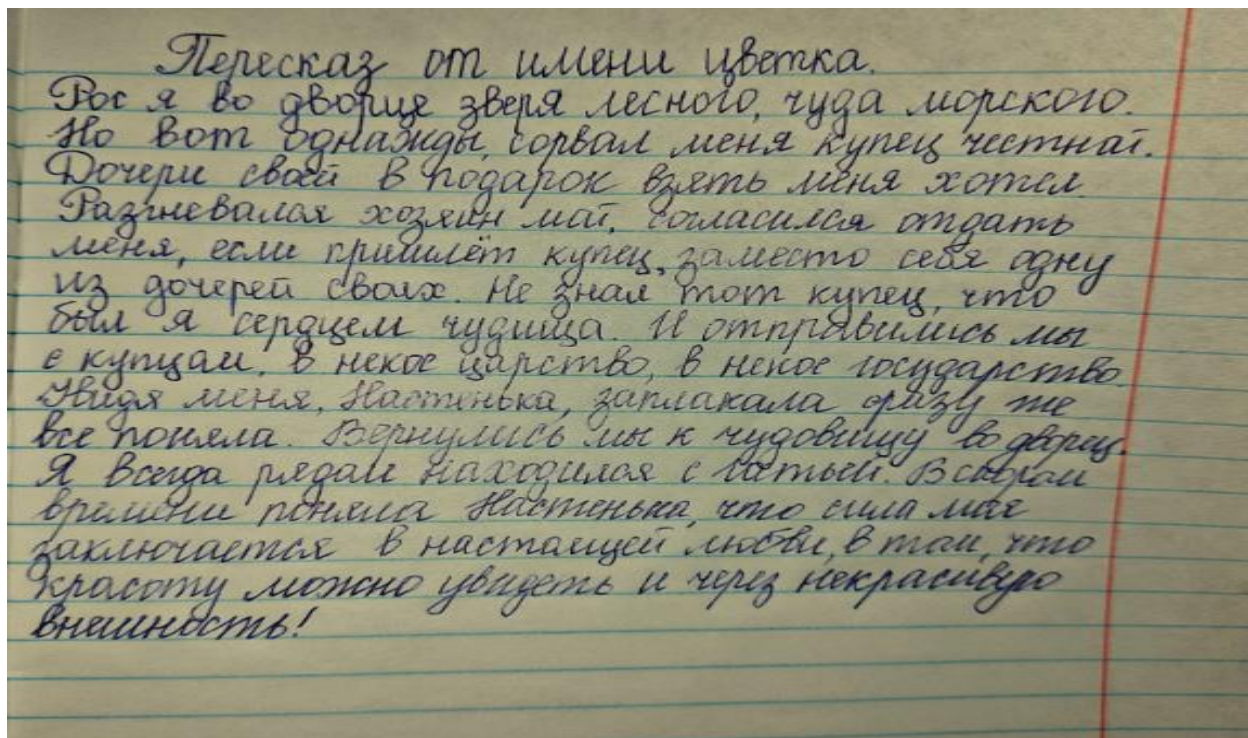 Пересказ от имени цветка.
Рос я во дворце зверя лесного, чуда морского.
Но вот однажды, сорвал меня купец честной.
Дочери своей в подарок взять меня хотел.
Разгневался хозяин мой, согласился отдать
меня, если пришлёт купец, заместо себя одну
из дочерей своих. Не знал тот купец, что
был я сердцем чудища. И отправились мы
с купцом, в некое царство, в некое государство.
Увидя меня, Настенька, заплакала сразу же
все поняла. Вернулись мы к чудовищу во дворец.
Я всегда рядом находился с гостьей. В скором
времени поняла Настенька, что сила моя
заключается в настоящей любви, в том, что
красоту можно увидеть и через некрасивую
внешность!